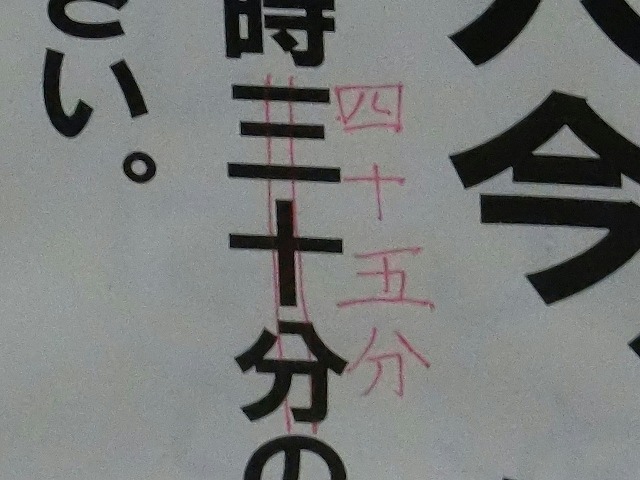 今
時三十分の
四十五分
い。